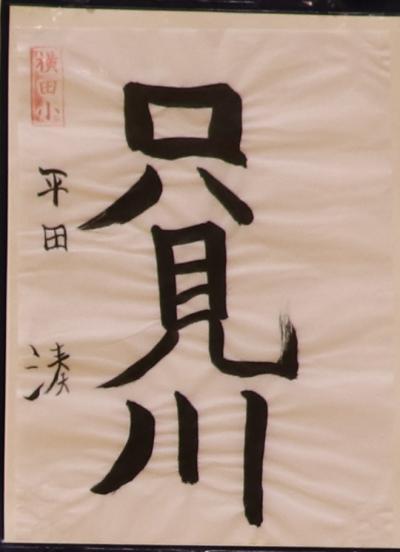 只見川
横田小
平田 湊